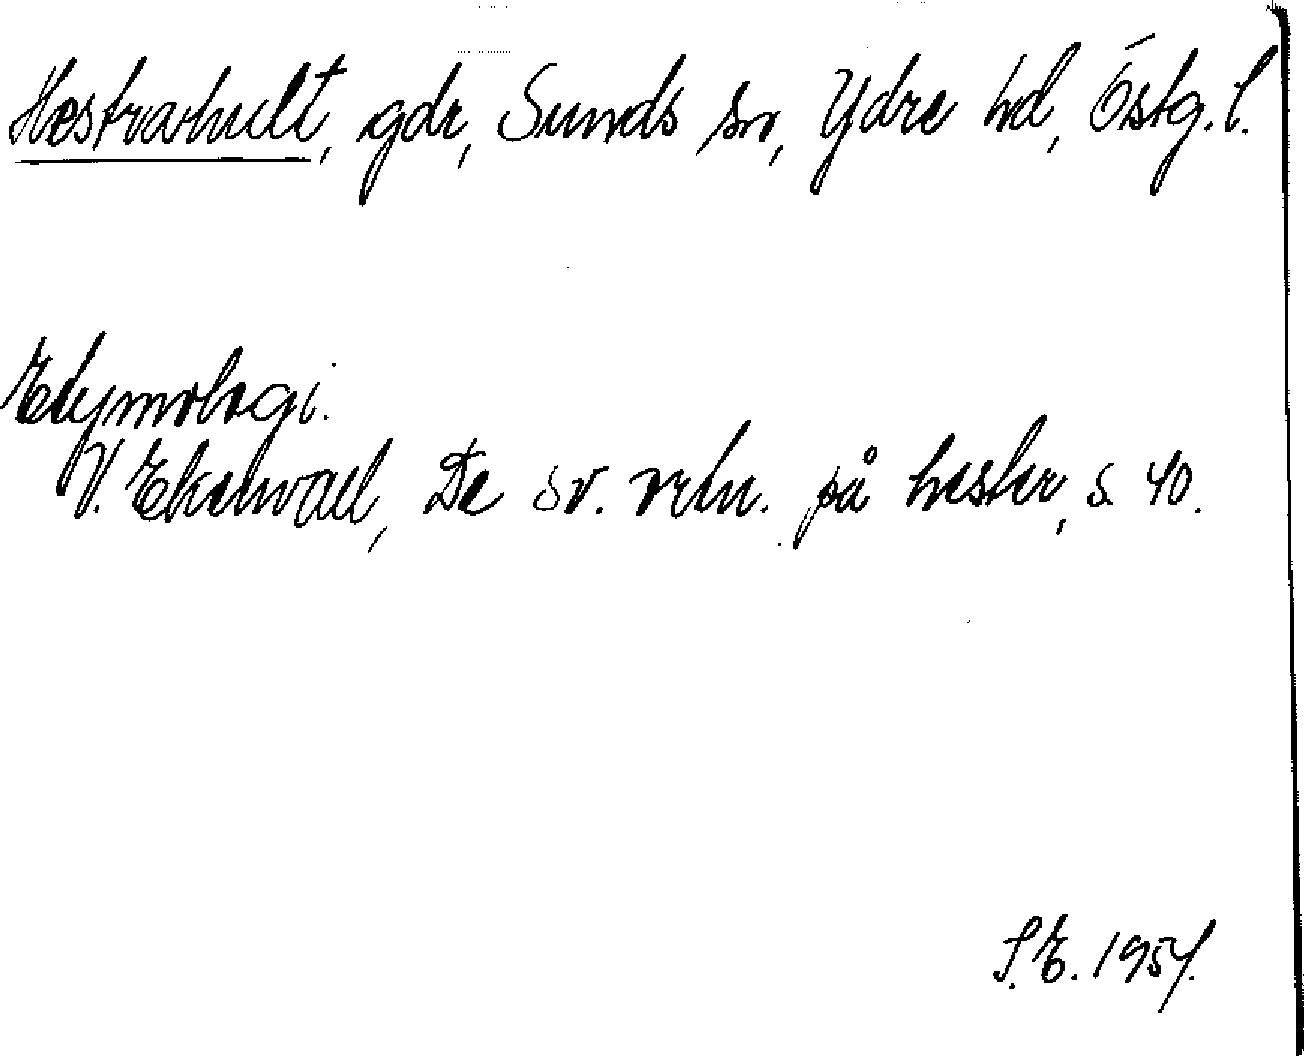 Hestrahult, gdr, Sunds sn, Ydre hd, Östg. l.
Etymologi.
V. Ekenvall, De sv. ortn. på hester, s. 40.
S.E. 1954.